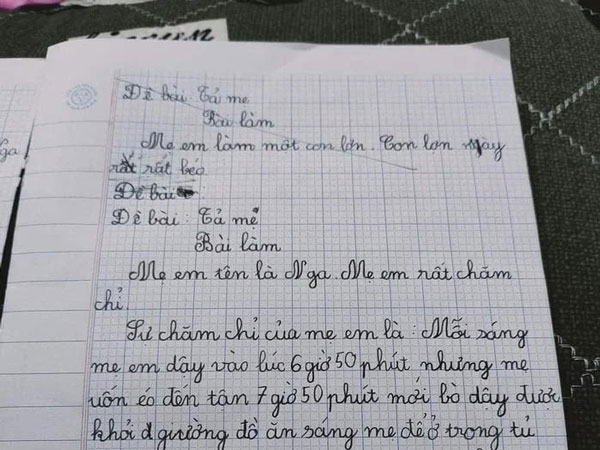 Đề bài: Tả mẹ
Bài làm
Mẹ em làm một con lợn. Con lợn này
rất rất béo.
Đề bài
Đề bài: Tả mẹ
Bài làm
Mẹ em tên là Nga. Mẹ em rất chăm
chỉ.
Sự chăm chỉ của mẹ em là: Mỗi sáng
mẹ em dậy vào lúc 6 giờ 50 phút nhưng mẹ
uốn éo đến tận 7 giờ 50 phút mới bò dậy được
khỏi giường đồ ăn sáng mẹ để ở trong tủ